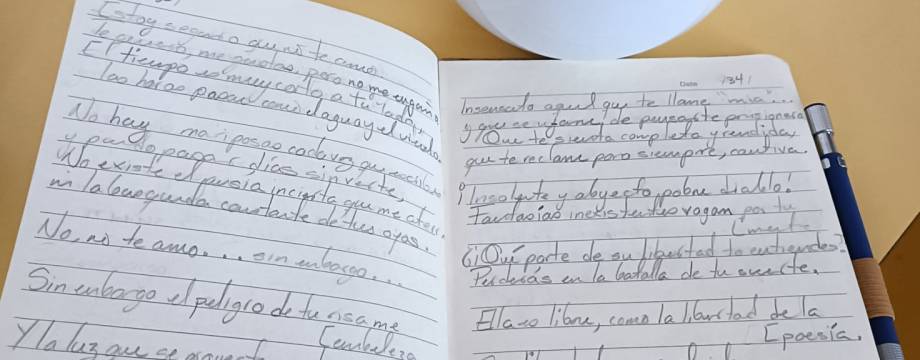 Estoy segundo que no te amo
te quiero, me gustas, pero no me engaño
El tiempo es muy corto a tu lado,
las horas pasan como el agua y el viento
No hay mariposas cadaver
y puedo pasar días sin verte,
No existe el ansia incierta que me
ni la búsqueda constante de tus ojos.
No, no te amo... sin embargo...
Sin embargo el peligro de tu risa me
[embelesa
Y la luz que se
Date 1341
Insensato aquel que te llame "mia"...
y que se ufane, de pensarte prisionera
¡Que te sienta completa y rendida,
que te reclame para siempre, cautiva.
¡Insolente y abyecto, pobre diablo!
Fantasías inexistentes vagan por tu
[mente
¿Qué parte de su libertad no entiendes?
Perderás en la batalla de tu suerte.
Ella es libre, como la libertad de la
[poesía,